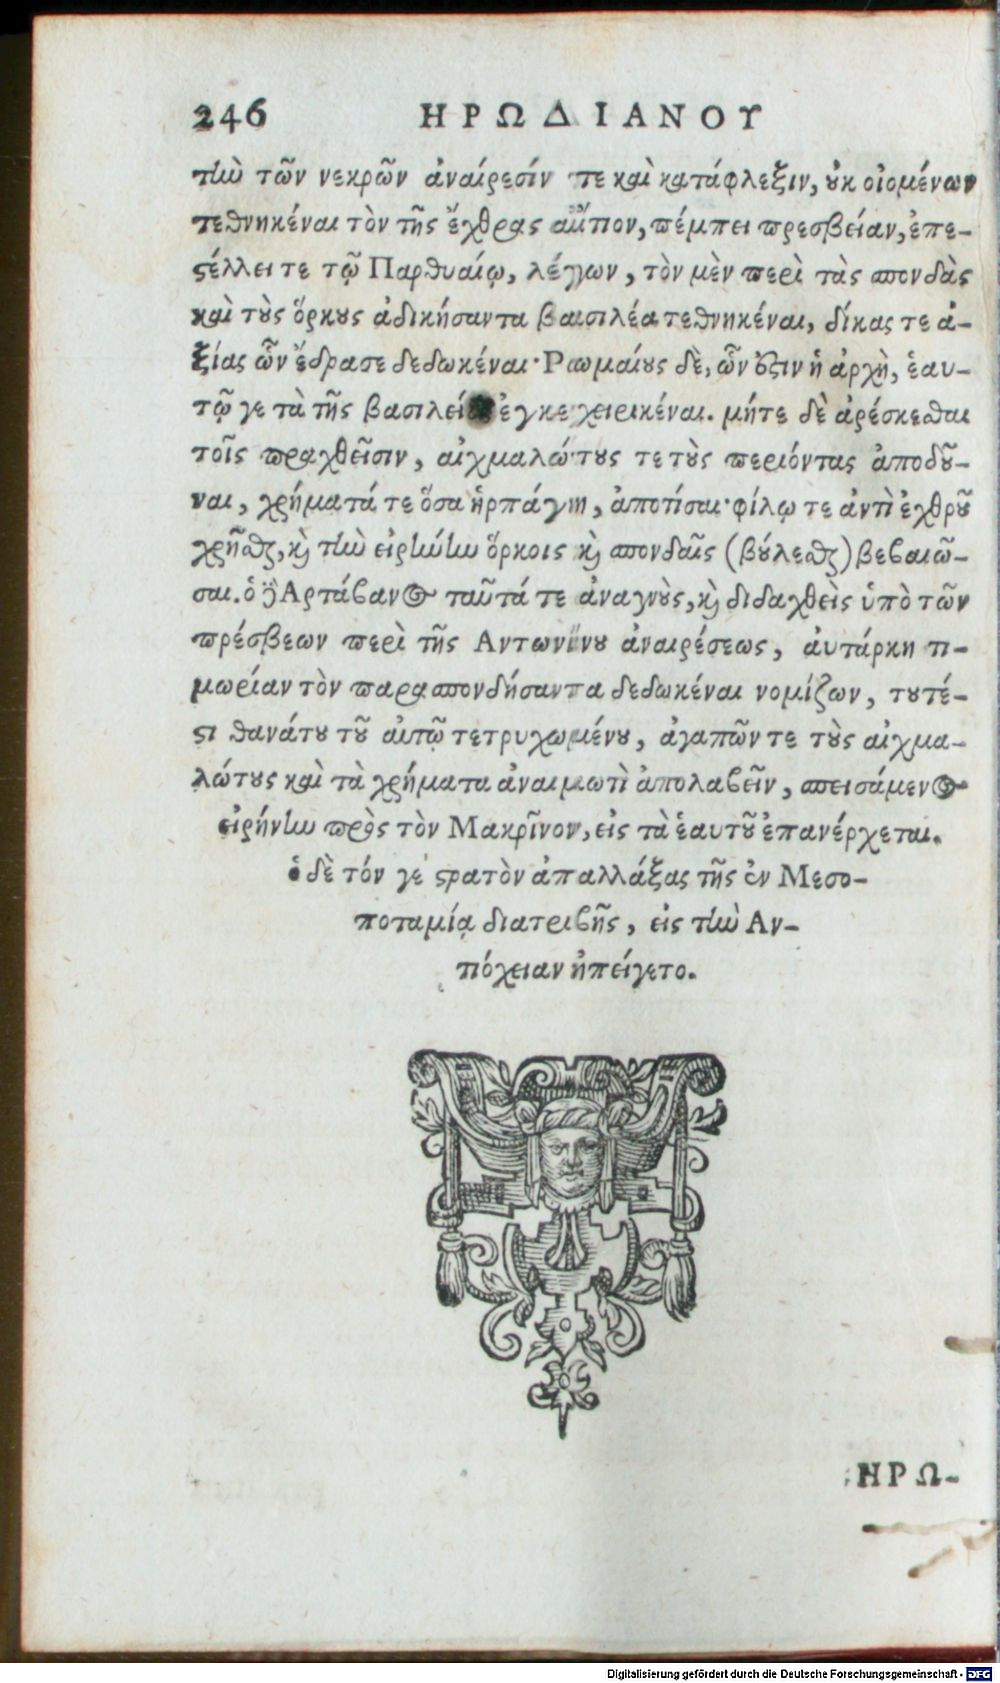 246 ΗΡΩΔΙΑΝΟΥ
τὴν τῶν νεκρῶν ἀναίρεσίν τε καὶ κατάφλεξιν, οὐκ οἰομένων
τεθνηκέναι τὸν τῆς ἔχθρας αἴτιον, πέμπει πρεσβείαν, ἐπε-
στέλλει τε τῷ Παρθυαίῳ, λέγων, τὸν μὲν περὶ τὰς σπονδὰς
καὶ τοὺς ὅρκους ἀδικήσαντα βασιλέα τεθνηκέναι, δίκας τε ἀ-
ξίας ὧν ἔδρασε δεδωκέναι· Ρωμαίους δὲ, ὧν ἐστιν ἡ ἀρχὴ, ἑαυ-
τῷ γε τὰ τῆς ἐγκεχειρικέναι. μήτε δὲ ἀρέσκεσθαι
τοῖς πραχθεῖσιν, αἰχμαλώτους τε τοὺς περιόντας ἀποδοῦ-
ναι, χρήματά τε ὅσα ἡρπάγη, ἀποτίσαι· φίλῳ τε ἀντὶ ἐχθροῦ
χρῆσθαι, καὶ τὴν εἰρήνην ὅρκοις καὶ σπονδαῖς (βούλεσθαι) βεβαιῶ-
σαι. ὁ δὲ Αρτάβανος ταῦτά τε ἀναγνοὺς, καὶ διδαχθεὶς ὑπὸ τῶν
πρέσβεων περὶ τῆς Αντωνίνου ἀναιρέσεως, αὐτάρκη τι-
μωρίαν τὸν παρασπονδήσαντα δεδωκέναι νομίζων, τουτέ-
στι θανάτου τοῦ αὐτῷ τετρυχωμένου, ἀγαπῶν τε τοὺς αἰχμα-
λώτους καὶ τὰ χρήματα ἀναιμωτὶ ἀπολαβεῖν, σπεισάμενος
εἰρήνην πρὸς τὸν Μακρῖνον, εἰς τὰ ἑαυτοῦ ἐπανέρχεται.
ὁ δὲ τόν γε στρατὸν ἀπαλλάξας τῆς ἐν Μεσο-
ποταμίᾳ διατριβῆς, εἰς τὴν Αν-
τιόχειαν ἠπείγετο.
ΗΡΩ-
Digitalisierung gefördert durch die Deutsche Forschungsgemeinschaft - DFG